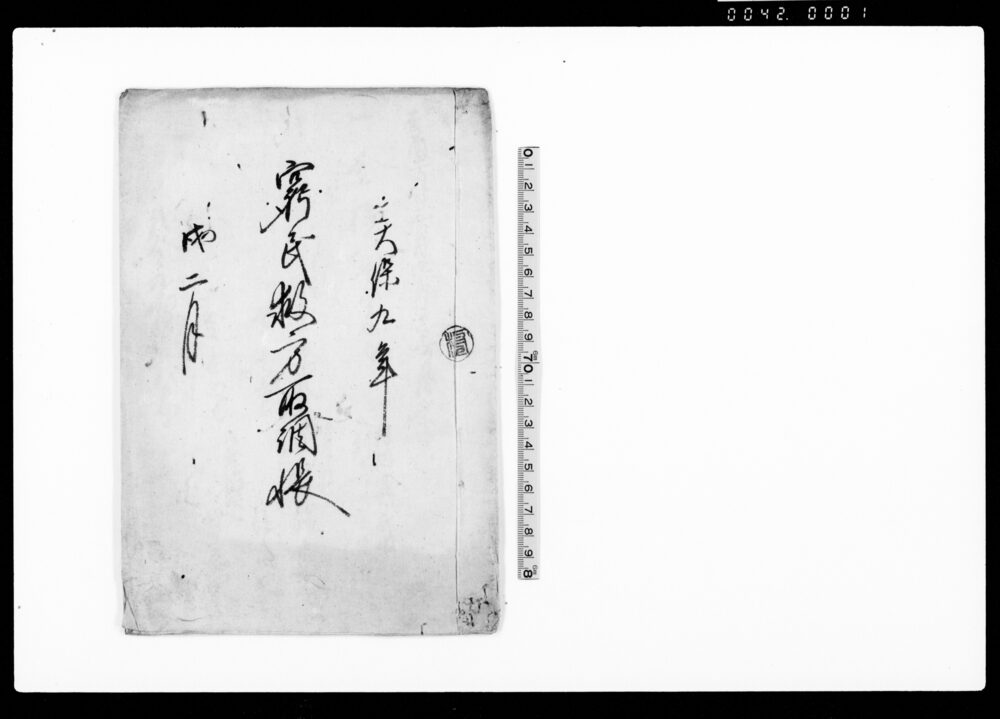 0042. 0001
天保九年
窮民救方取調帳
戌二月
0 1 2 3 4 5 6 7 8 9 10 1 2 3 4 5 6 7 8 9 8